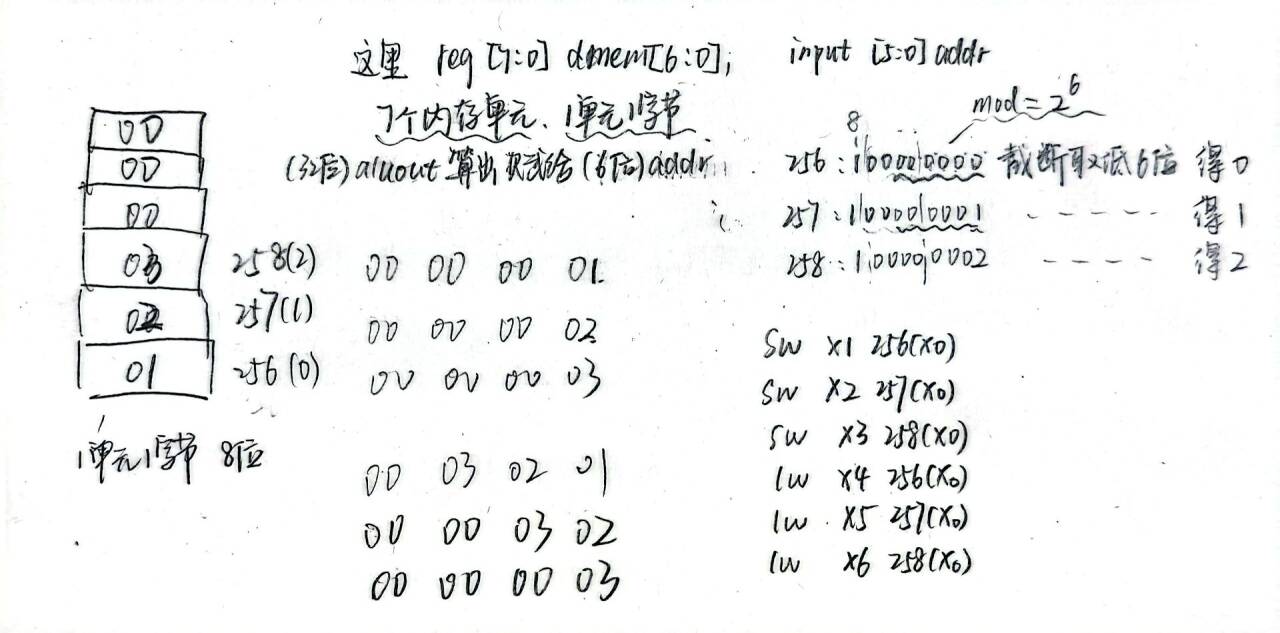 这里 reg [7:0] dmem[6:0]; input [5:0] addr
7个内存单元、1单元1字节
mod = 2^6
8
(32位) aluout 算出 赋给 (6位) addr
256 : 100000000 截断取低6位 得0
257 : 100000001 ----- 得1
258 : 100000002 ---- 得2
00
00
00
03 258(2)
02 257(1)
01 256(0)
1单元1字节 8位
00 00 00 01
00 00 00 02
00 00 00 03
00 03 02 01
00 00 03 02
00 00 00 03
sw x1 256(x0)
sw x2 257(x0)
sw x3 258(x0)
lw x4 256(x0)
lw x5 257(x0)
lw x6 258(x0)